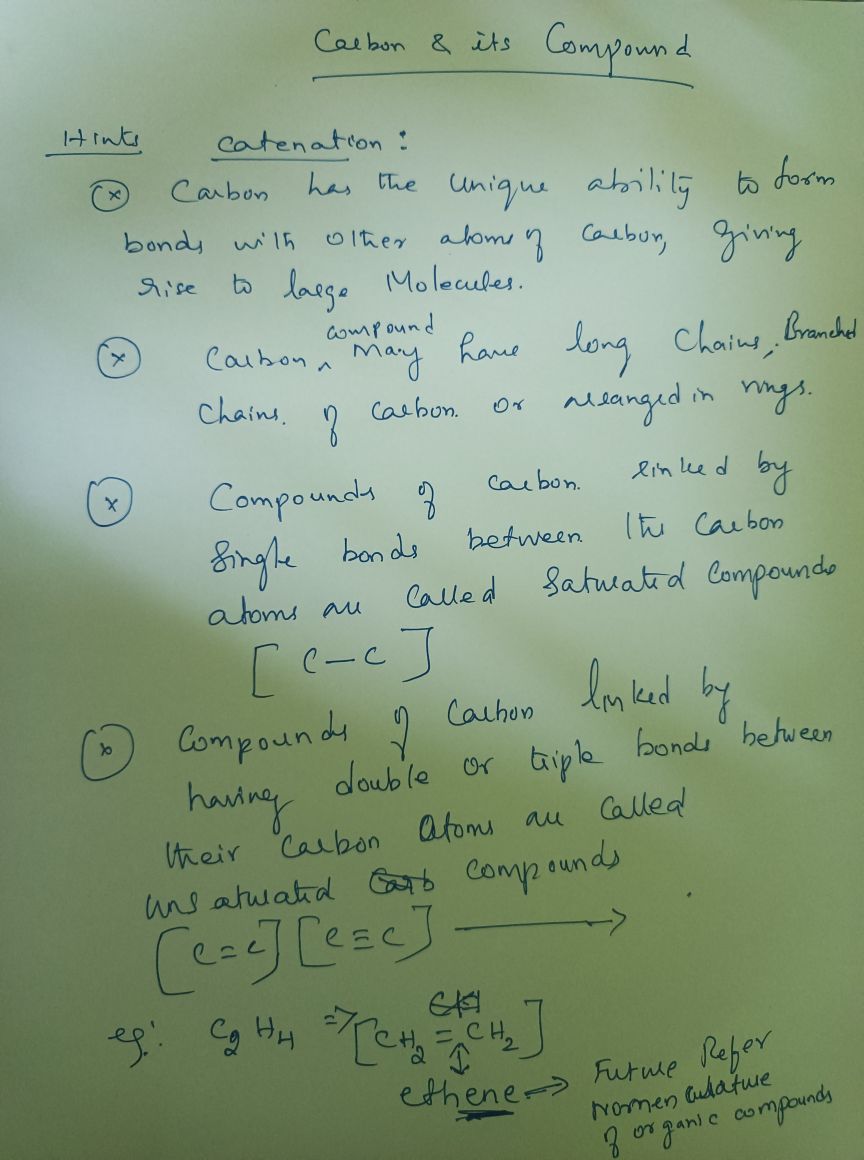 Carbon & its Compound
Hints catenation :
Carbon has the unique ability to form
bonds with other atoms of Carbon, giving
rise to large Molecules.
compound
Carbon ^ may have long Chains, Branched
Chains. of Carbon. or arranged in rings.
Compounds of carbon. linked by
Single bonds between the Carbon
atoms are Called Saturated Compounds
[ C-C ]
Compounds of Carbon linked by
having double or triple bonds between
their Carbon Atoms are Called
unsaturated Carb compounds
[C=C] [C≡C] →
eg: C2H4 => [CH2 = CH2]
ethene => Future Refer
Nomenculature
of organic compounds